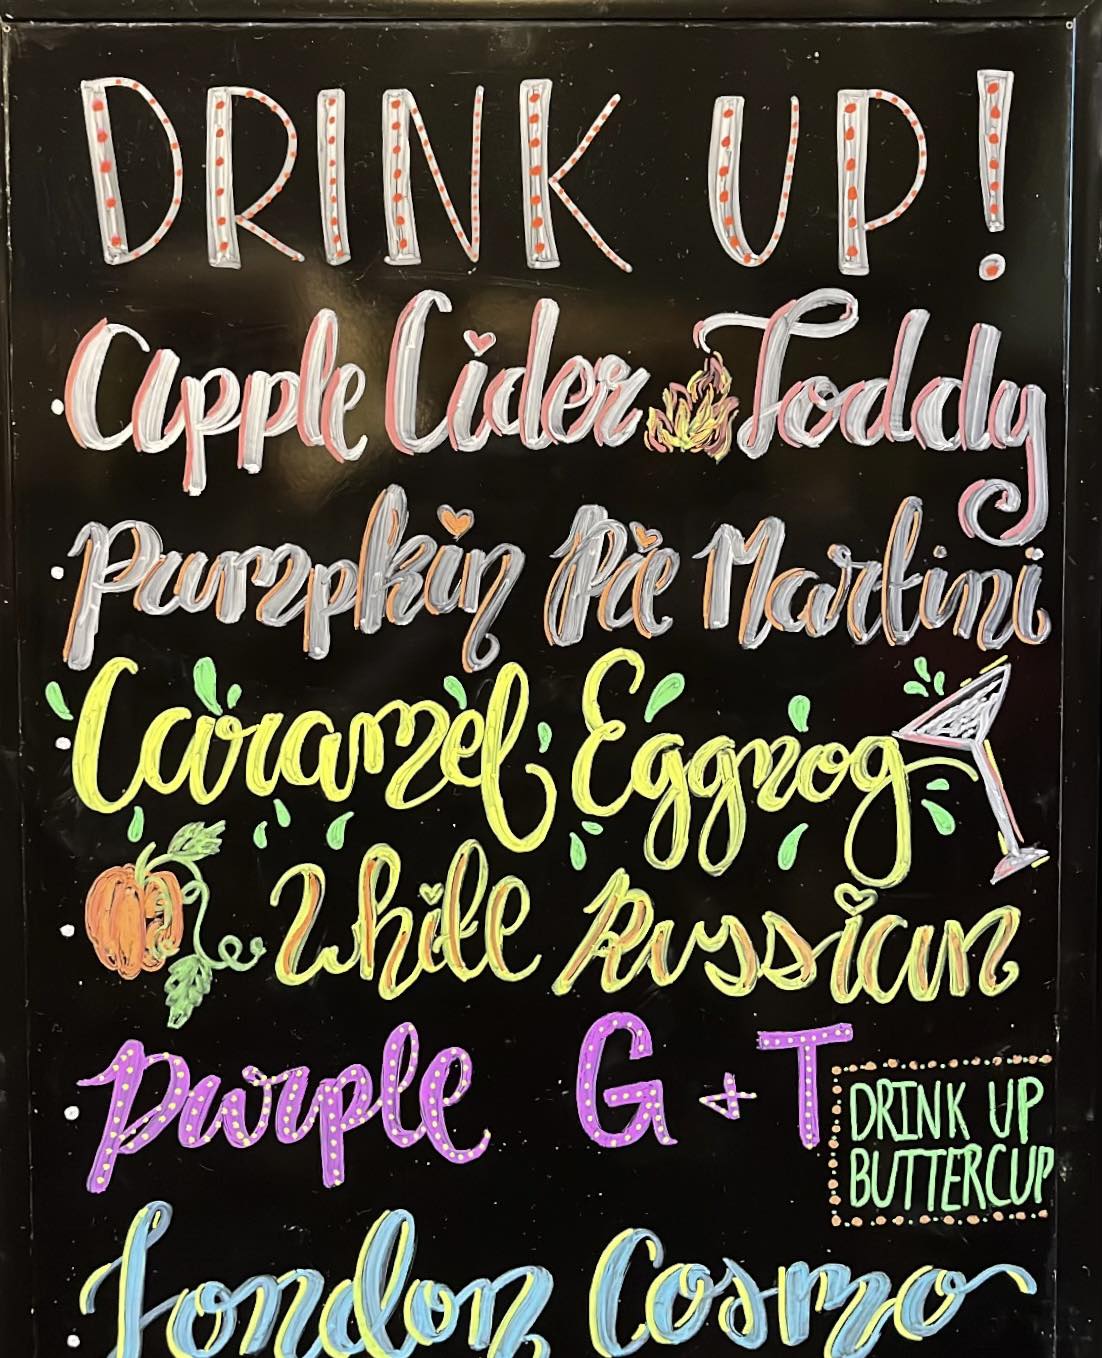 DRINK UP!
Apple Cider Toddy
Pumpkin Pie Martini
Caramel Eggnog
White Russian
Purple G + T
DRINK UP
BUTTERCUP
London Cosmo